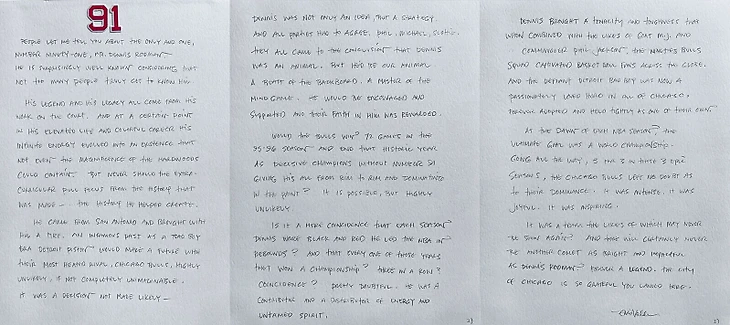 91
PEOPLE LET ME TELL YOU ABOUT THE ONLY AND ONE,
NUMBER NINETY-ONE, MR. DENNIS RODMAN.
HE IS SURPRISINGLY WELL KNOWN CONSIDERING THAT
NOT TOO MANY PEOPLE TRULY GET TO KNOW HIM.
HIS LEGEND AND HIS LEGACY ALL COME FROM HIS
WORK ON THE COURT. AND AT A CERTAIN POINT
IN HIS ELEVATED LIFE AND COLORFUL CAREER HIS
INFINITE ENERGY EVOLVED INTO AN EXISTENCE THAT
NOT EVEN THE MAGNIFICENCE OF THE HARDWOODS
COULD CONTAIN. BUT NEVER SHOULD THE EXTRA-
CURRICULAR PULL FOCUS FROM THE HISTORY THAT
WAS MADE — THE HISTORY HE HELPED CREATE.
HE CAME FROM SAN ANTONIO AND BROUGHT WITH
HIM A MYTH. AN INFAMOUS PAST AS A BAD BOY
DETROIT PISTON WOULD MAKE A FUTURE WITH
THEIR MOST HEATED RIVAL, CHICAGO BULLS, HIGHLY
UNLIKELY, IF NOT COMPLETELY UNIMAGINABLE.
IT WAS A DECISION NOT MADE LIKELY —
DENNIS WAS NOT ONLY AN IDEA, BUT A STRATEGY
AND ALL PARTIES HAD TO AGREE. PHIL, MICHAEL, SCOTTIE,
THEY ALL CAME TO THE CONCLUSION THAT DENNIS
WAS AN ANIMAL. BUT HE'D BE OUR ANIMAL
A BEAST OF THE BACKBOARD. A MASTER OF THE
MIND GAME. HE WOULD BE ENCOURAGED AND
SUPPORTED AND THEIR FAITH IN HIM WAS REWARDED.
WOULD THE BULLS WIN 72 GAMES IN THE
95-96 SEASON AND END THAT HISTORIC YEAR
AS DECISIVE CHAMPIONS WITHOUT NUMBER 91
GIVING HIS ALL FROM RIM TO RIM AND DOMINATING
IN THE PAINT? IT IS POSSIBLE, BUT HIGHLY
UNLIKELY.
IS IT A MERE COINCIDENCE THAT EACH SEASON
DENNIS WORE BLACK AND RED HE LED THE NBA IN
REBOUNDS? AND THAT EVERY ONE OF THOSE YEARS
THEY WON A CHAMPIONSHIP? THREE IN A ROW?
COINCIDENCE? PRETTY DOUBTFUL. HE WAS A
CONTRIBUTOR AND A DISTRIBUTOR OF ENERGY AND
UNTAMED SPIRIT.
DENNIS BROUGHT A TENACITY AND TOUGHNESS THAT
WHEN COMBINED WITH THE LIKES OF GOAT M.J. AND
COMMANDER PHIL JACKSON, THE NINETIES BULLS
SQUAD CAPTIVATED BASKETBALL FANS ACROSS THE GLOBE.
AND THE DEFIANT DETROIT BAD BOY WAS NOW A
PASSIONATELY LOVED HERO IN ALL OF CHICAGO,
FOREVER ADOPTED AND HELD TIGHTLY AS ONE OF THEIR OWN.
AT THE DAWN OF EACH NBA SEASON, THE
ULTIMATE GOAL WAS A WORLD CHAMPIONSHIP.
GOING ALL THE WAY, 3 FOR 3 IN THOSE 3 EPIC
SEASONS, THE CHICAGO BULLS LEFT NO DOUBT AS
TO THEIR DOMINANCE. IT WAS INTENSE. IT WAS
JOYFUL. IT WAS INSPIRING.
IT WAS A TEAM THE LIKES OF WHICH MAY NEVER
BE SEEN AGAIN. AND THERE WILL CERTAINLY NEVER
BE ANOTHER COMET AS BRIGHT AND IMPACTFUL
AS DENNIS RODMAN. FOREVER A LEGEND. THE CITY
OF CHICAGO IS SO GRATEFUL YOU LANDED HERE.